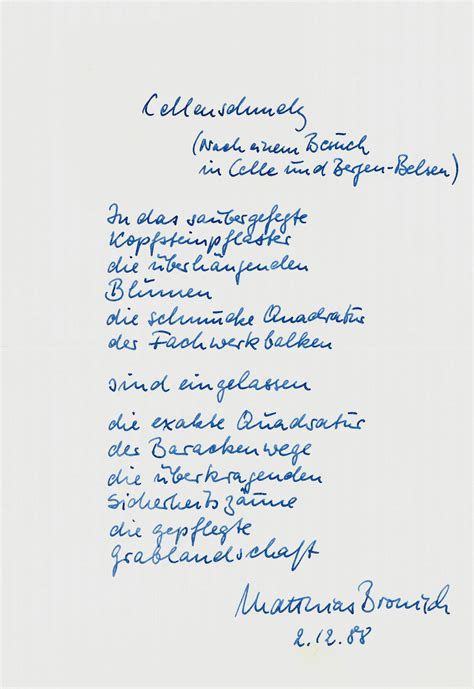 Cellenschmelz
(Nach einem Besuch
in Celle und Bergen-Belsen)
In das saubergefegte
Kopfsteinpflaster
die überhängenden
Blumen
die schmucke Quadratur
der Fachwerkbalken
sind eingelassen
die exakte Quadratur
der Barackenwege
die überkragenden
Sicherheitszäune
die gepflegte
Grablandschaft
Matthias Bronisch
2.12.88